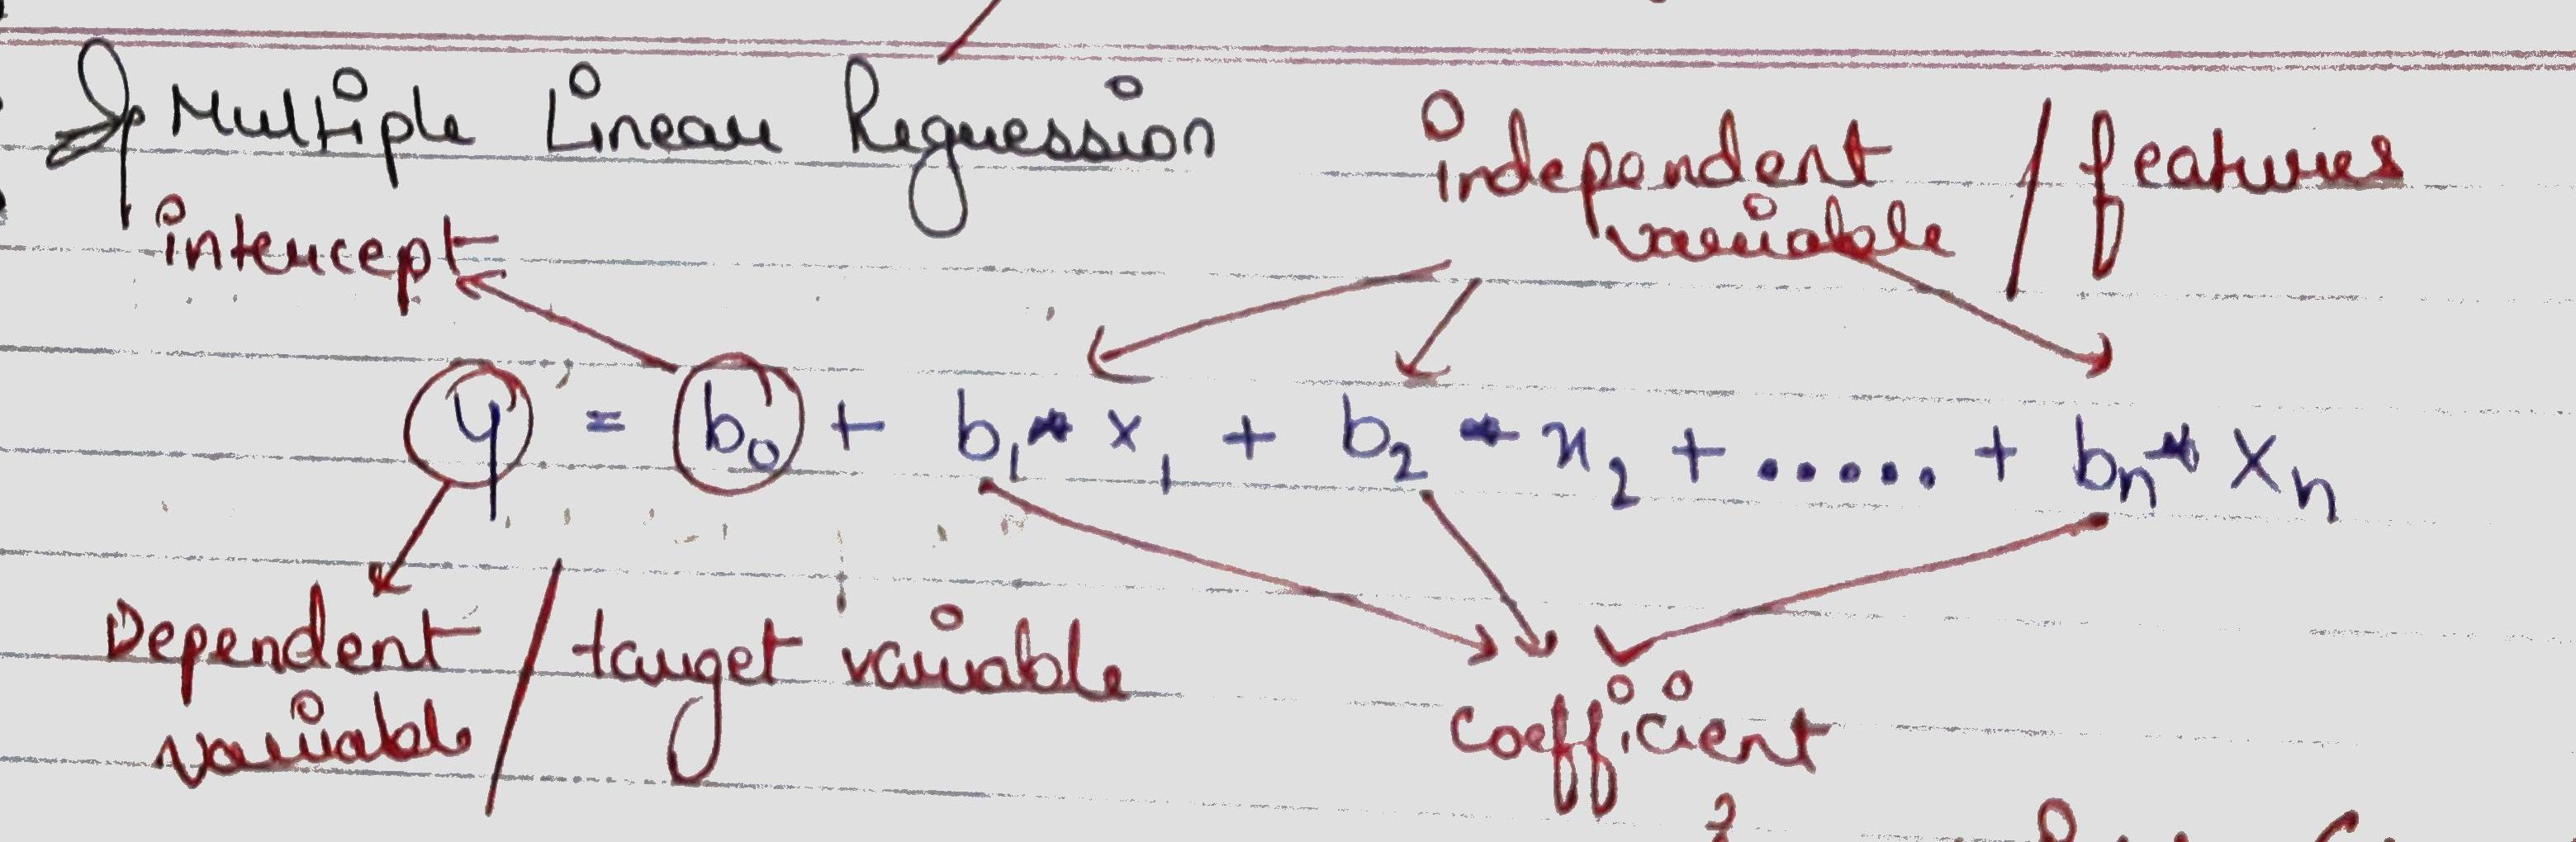 Multiple Linear Regression
independent variable / features
intercept
y = b₀ + b₁ * x₁ + b₂ * x₂ + ...... + bₙ * xₙ
Dependent variable / target variable
coefficient